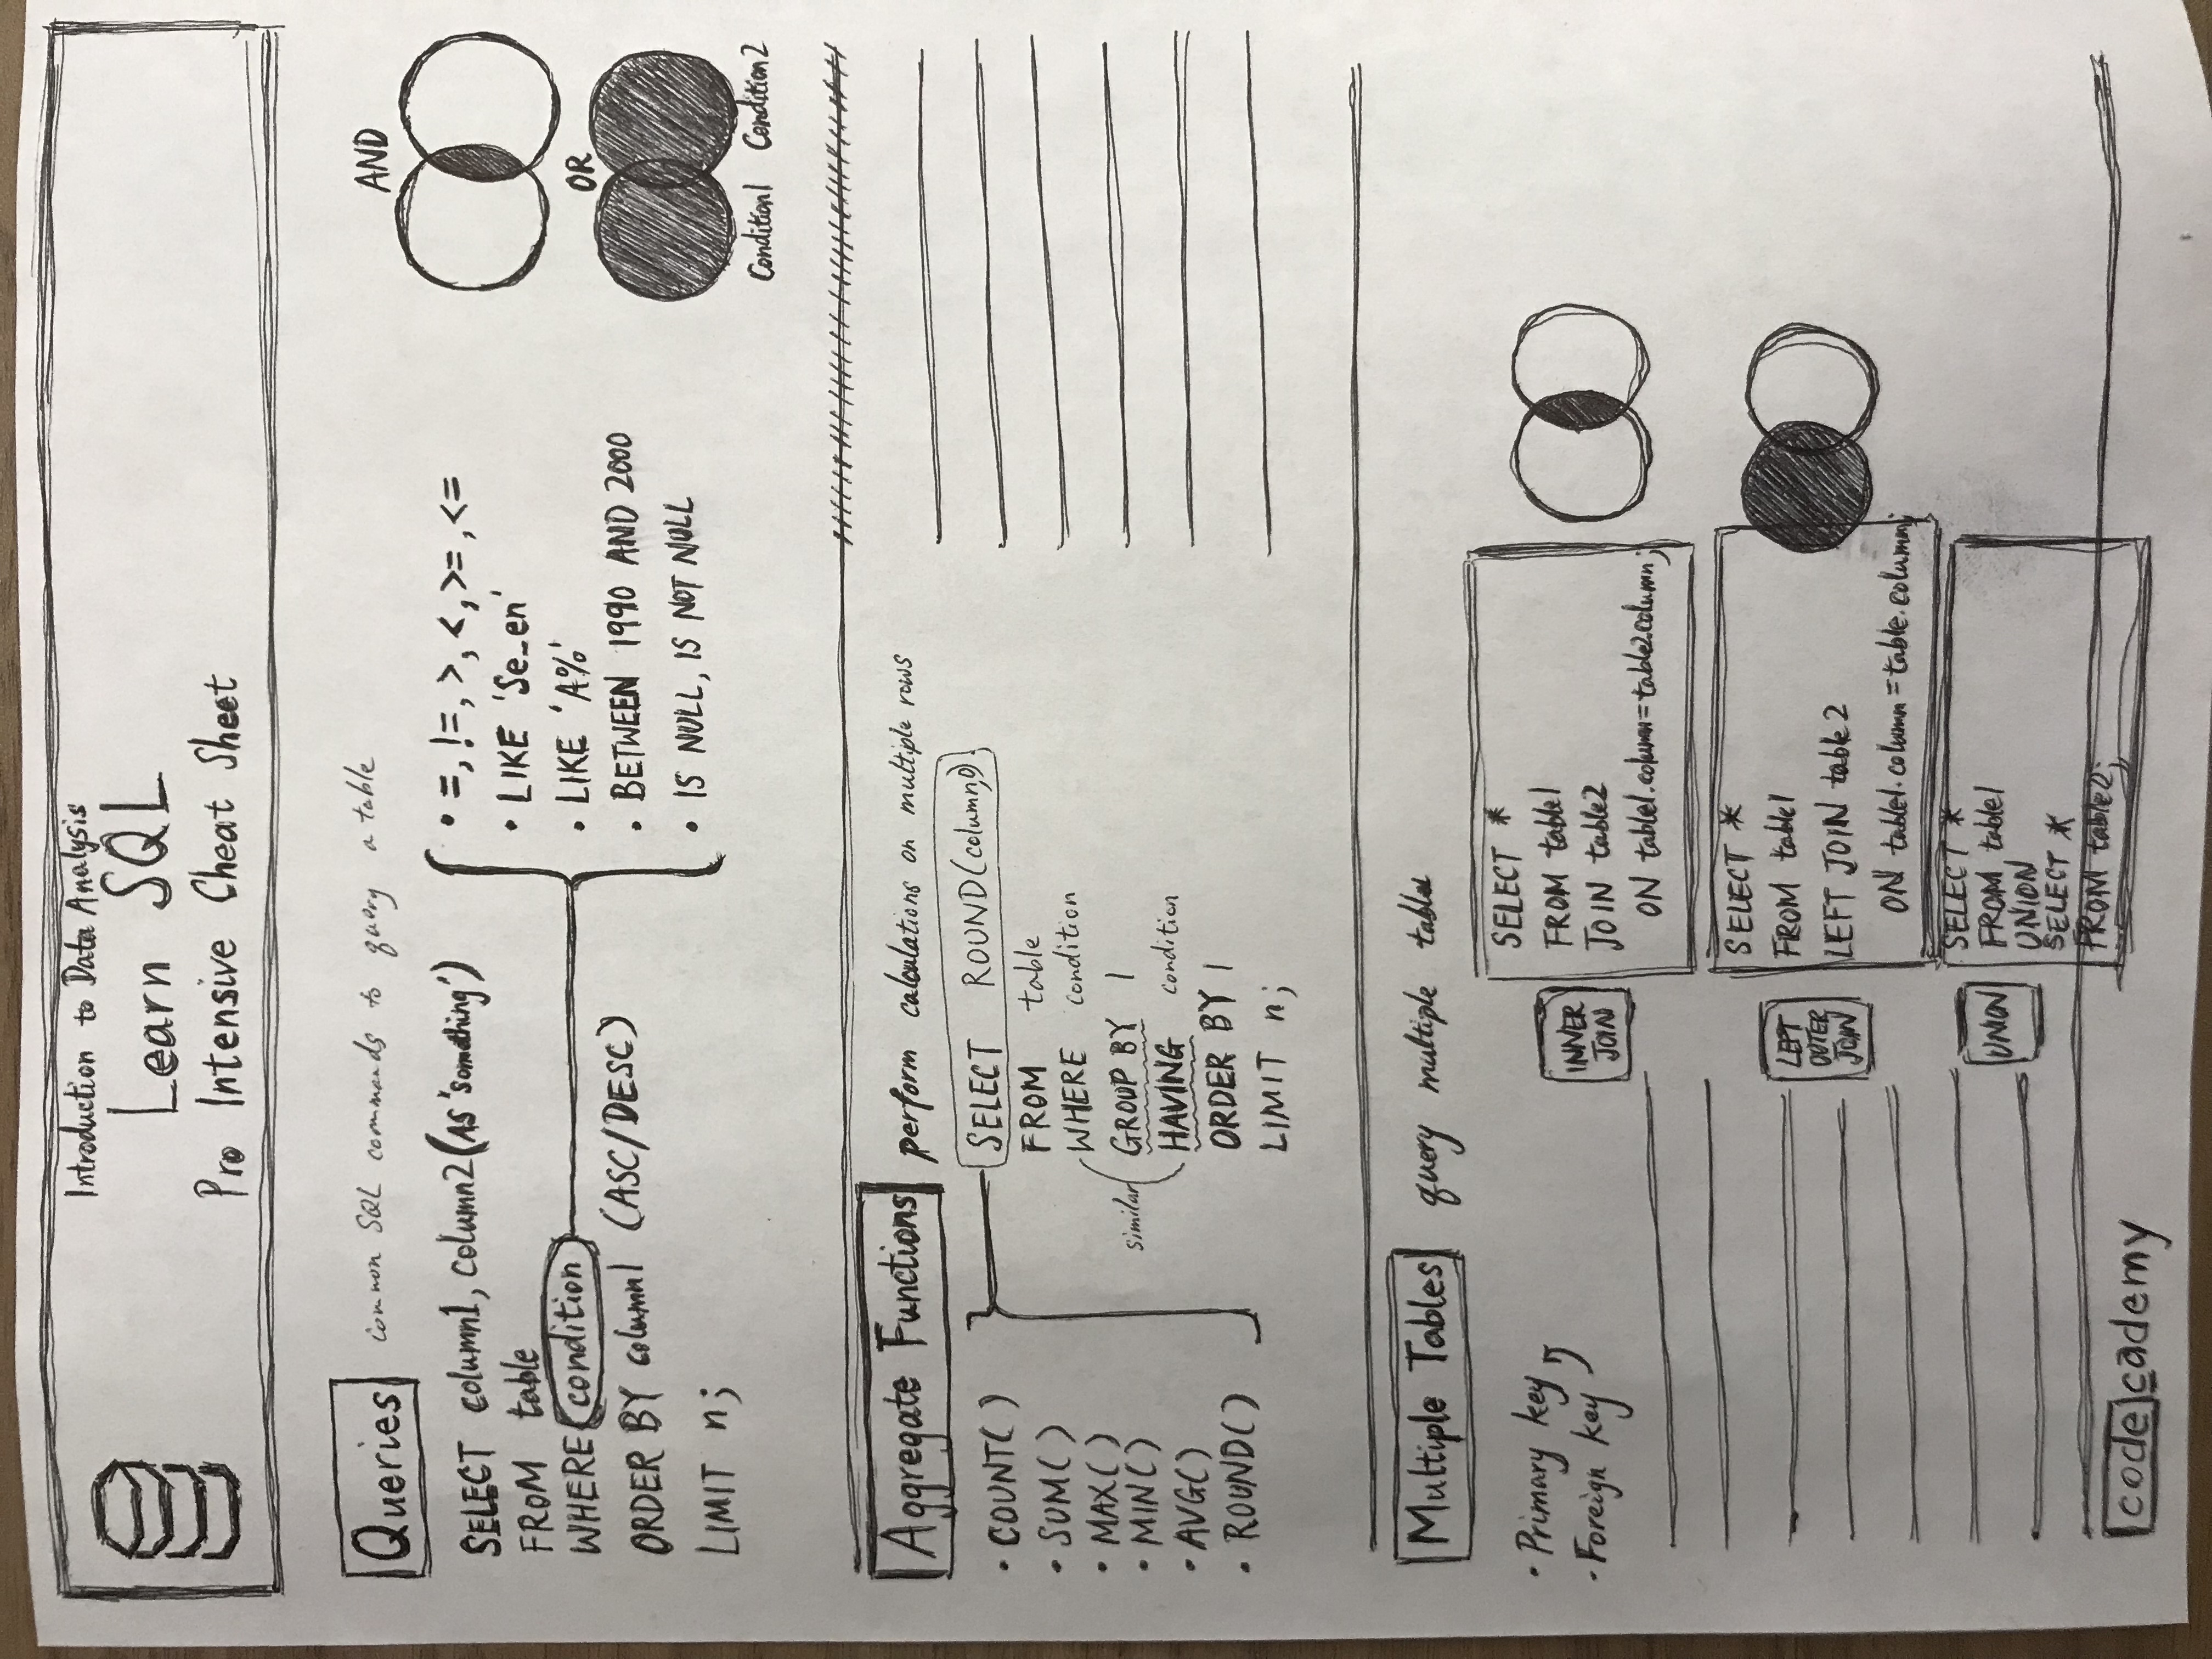 Introduction to Data Analysis
Learn SQL
Pro Intensive Cheat Sheet
Queries common SQL commands to query a table
SELECT column1, column2 (AS 'something')
FROM table
WHERE condition
ORDER BY column1 (ASC/DESC)
LIMIT n;
• =, !=, >, <, >=, <=
• LIKE 'Se_en'
• LIKE 'A%'
• BETWEEN 1990 AND 2000
• IS NULL, IS NOT NULL
AND
OR
Condition1 Condition2
Aggregate Functions perform calculations on multiple rows
• COUNT()
• SUM()
• MAX()
• MIN()
• AVG()
• ROUND()
SELECT ROUND(column,0)
FROM table
WHERE condition
similar
GROUP BY 1
HAVING condition
ORDER BY 1
LIMIT n;
Multiple Tables query multiple tables
• Primary key
• Foreign key
INNER
JOIN
SELECT *
FROM table1
JOIN table2
ON table1.column=table2.column;
LEFT
OUTER
JOIN
SELECT *
FROM table1
LEFT JOIN table2
ON table1.column=table.column;
UNION
SELECT *
FROM table1
UNION
SELECT *
FROM table2;
codecademy